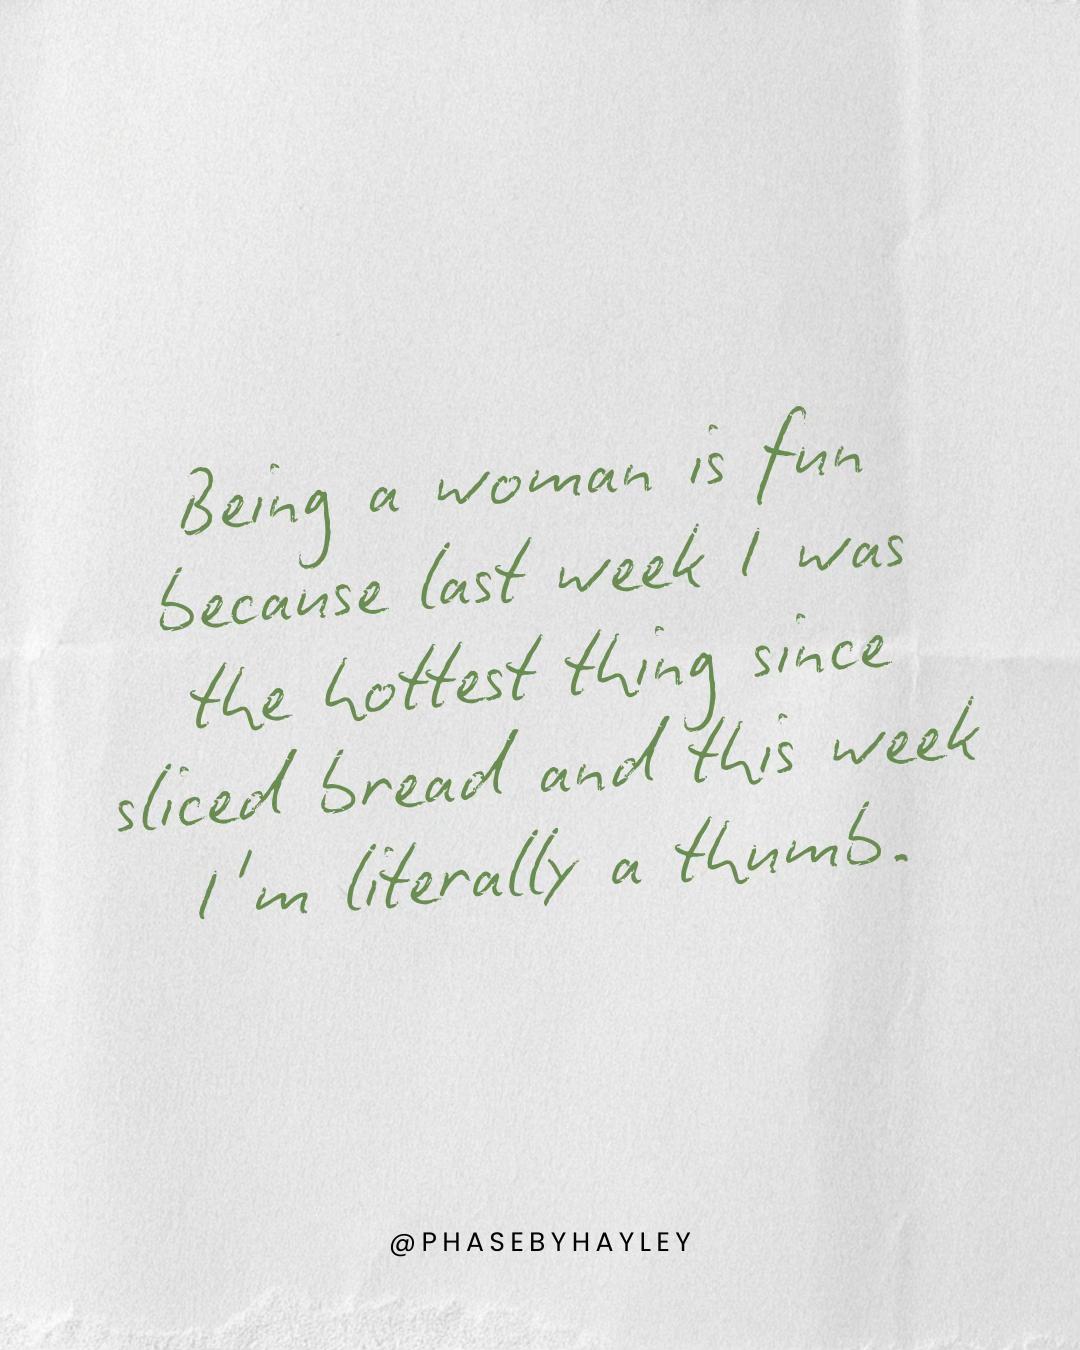 Being a woman is fun
because last week I was
the hottest thing since
sliced bread and this week
I'm literally a thumb.
@PHASEBYHAYLEY